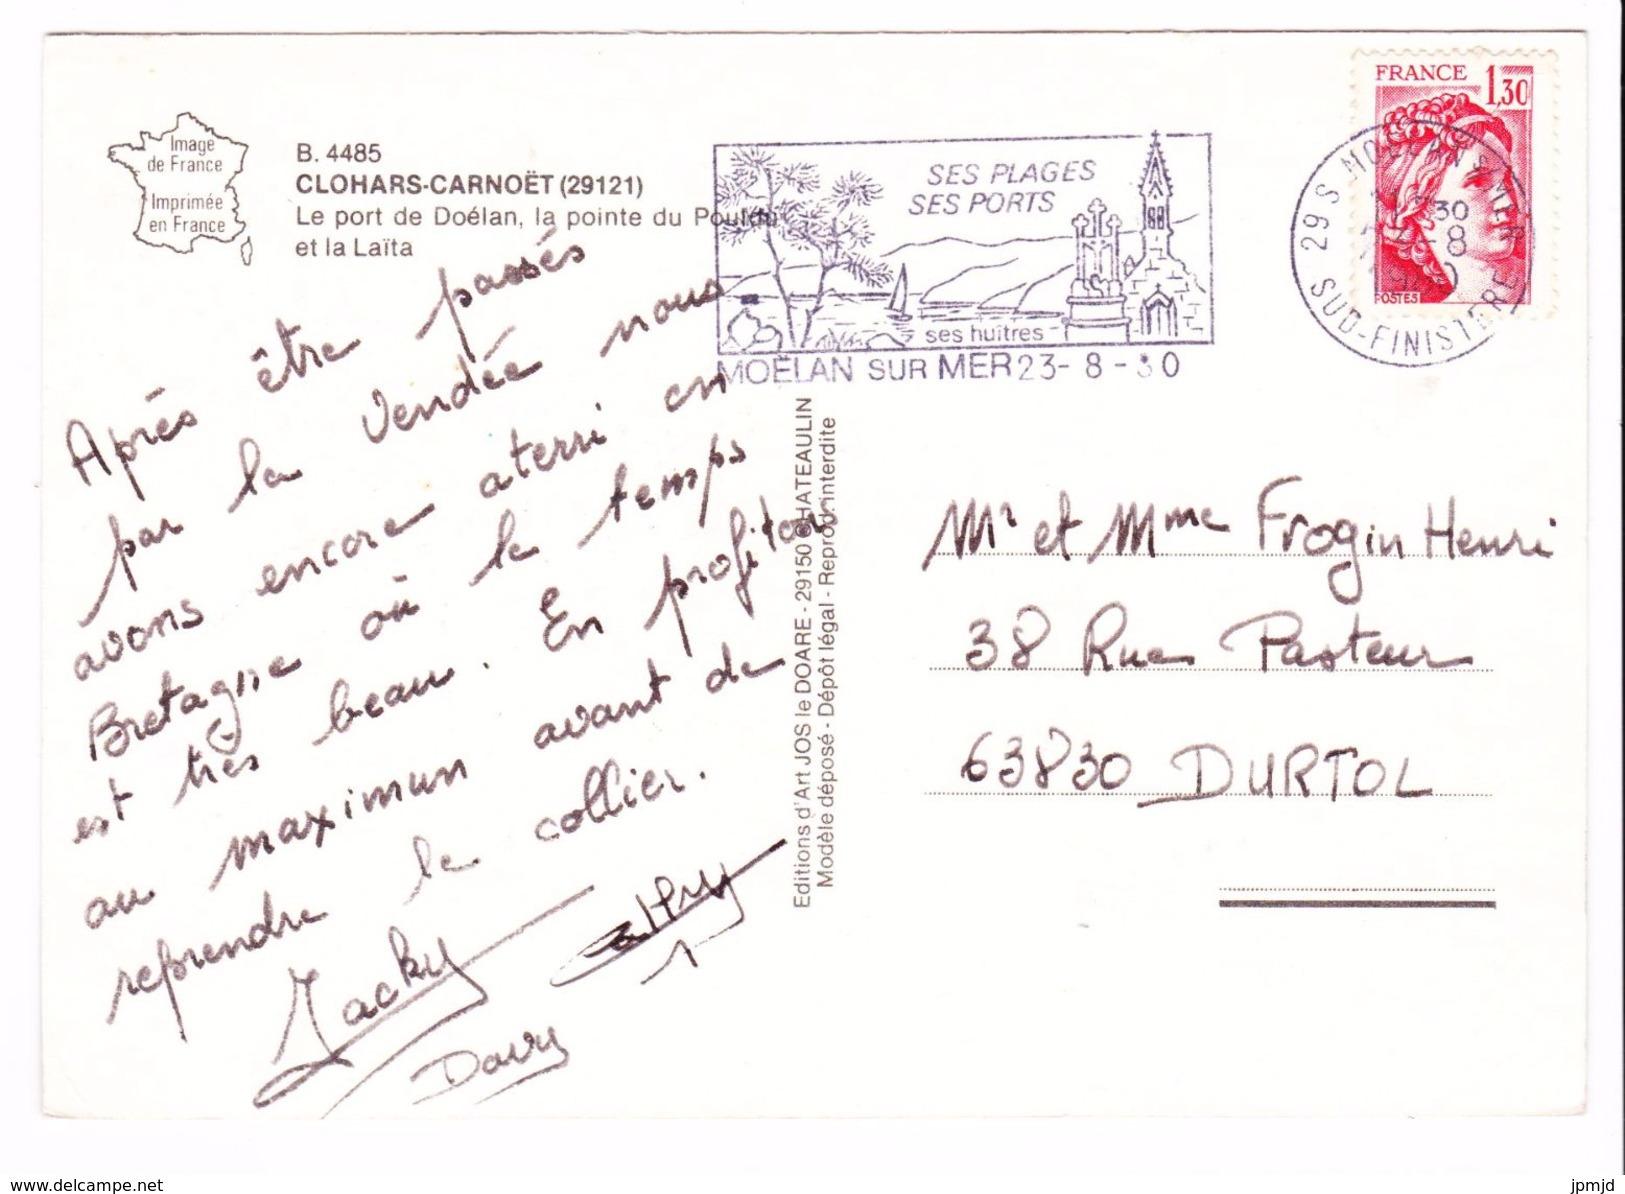 Image
de France
Imprimée
en France
B. 4485
CLOHARS-CARNOËT (29121)
Le port de Doélan, la pointe du Pouldu
et la Laïta
Après être passés
par la Vendée nous
avons encore aterri en
Bretagne où le temps
est très beau. En profiter
au maximun avant de
reprendre le collier.
Jacky
Davy
SES PLAGES
SES PORTS
ses huîtres
MOËLAN SUR MER 23-8-
FRANCE 1,30
POSTES
29S MOELAN S/MER
30
8
SUD-FINISTERE
Editions d'Art JOS le DOARE - 29150 CHATEAULIN
Modèle déposé - Dépôt légal - Reprod. interdite
Mr et Mme Frogin Henri
38 Rue Pasteur
63830 DURTOL
www.delcampe.net
jpmjd